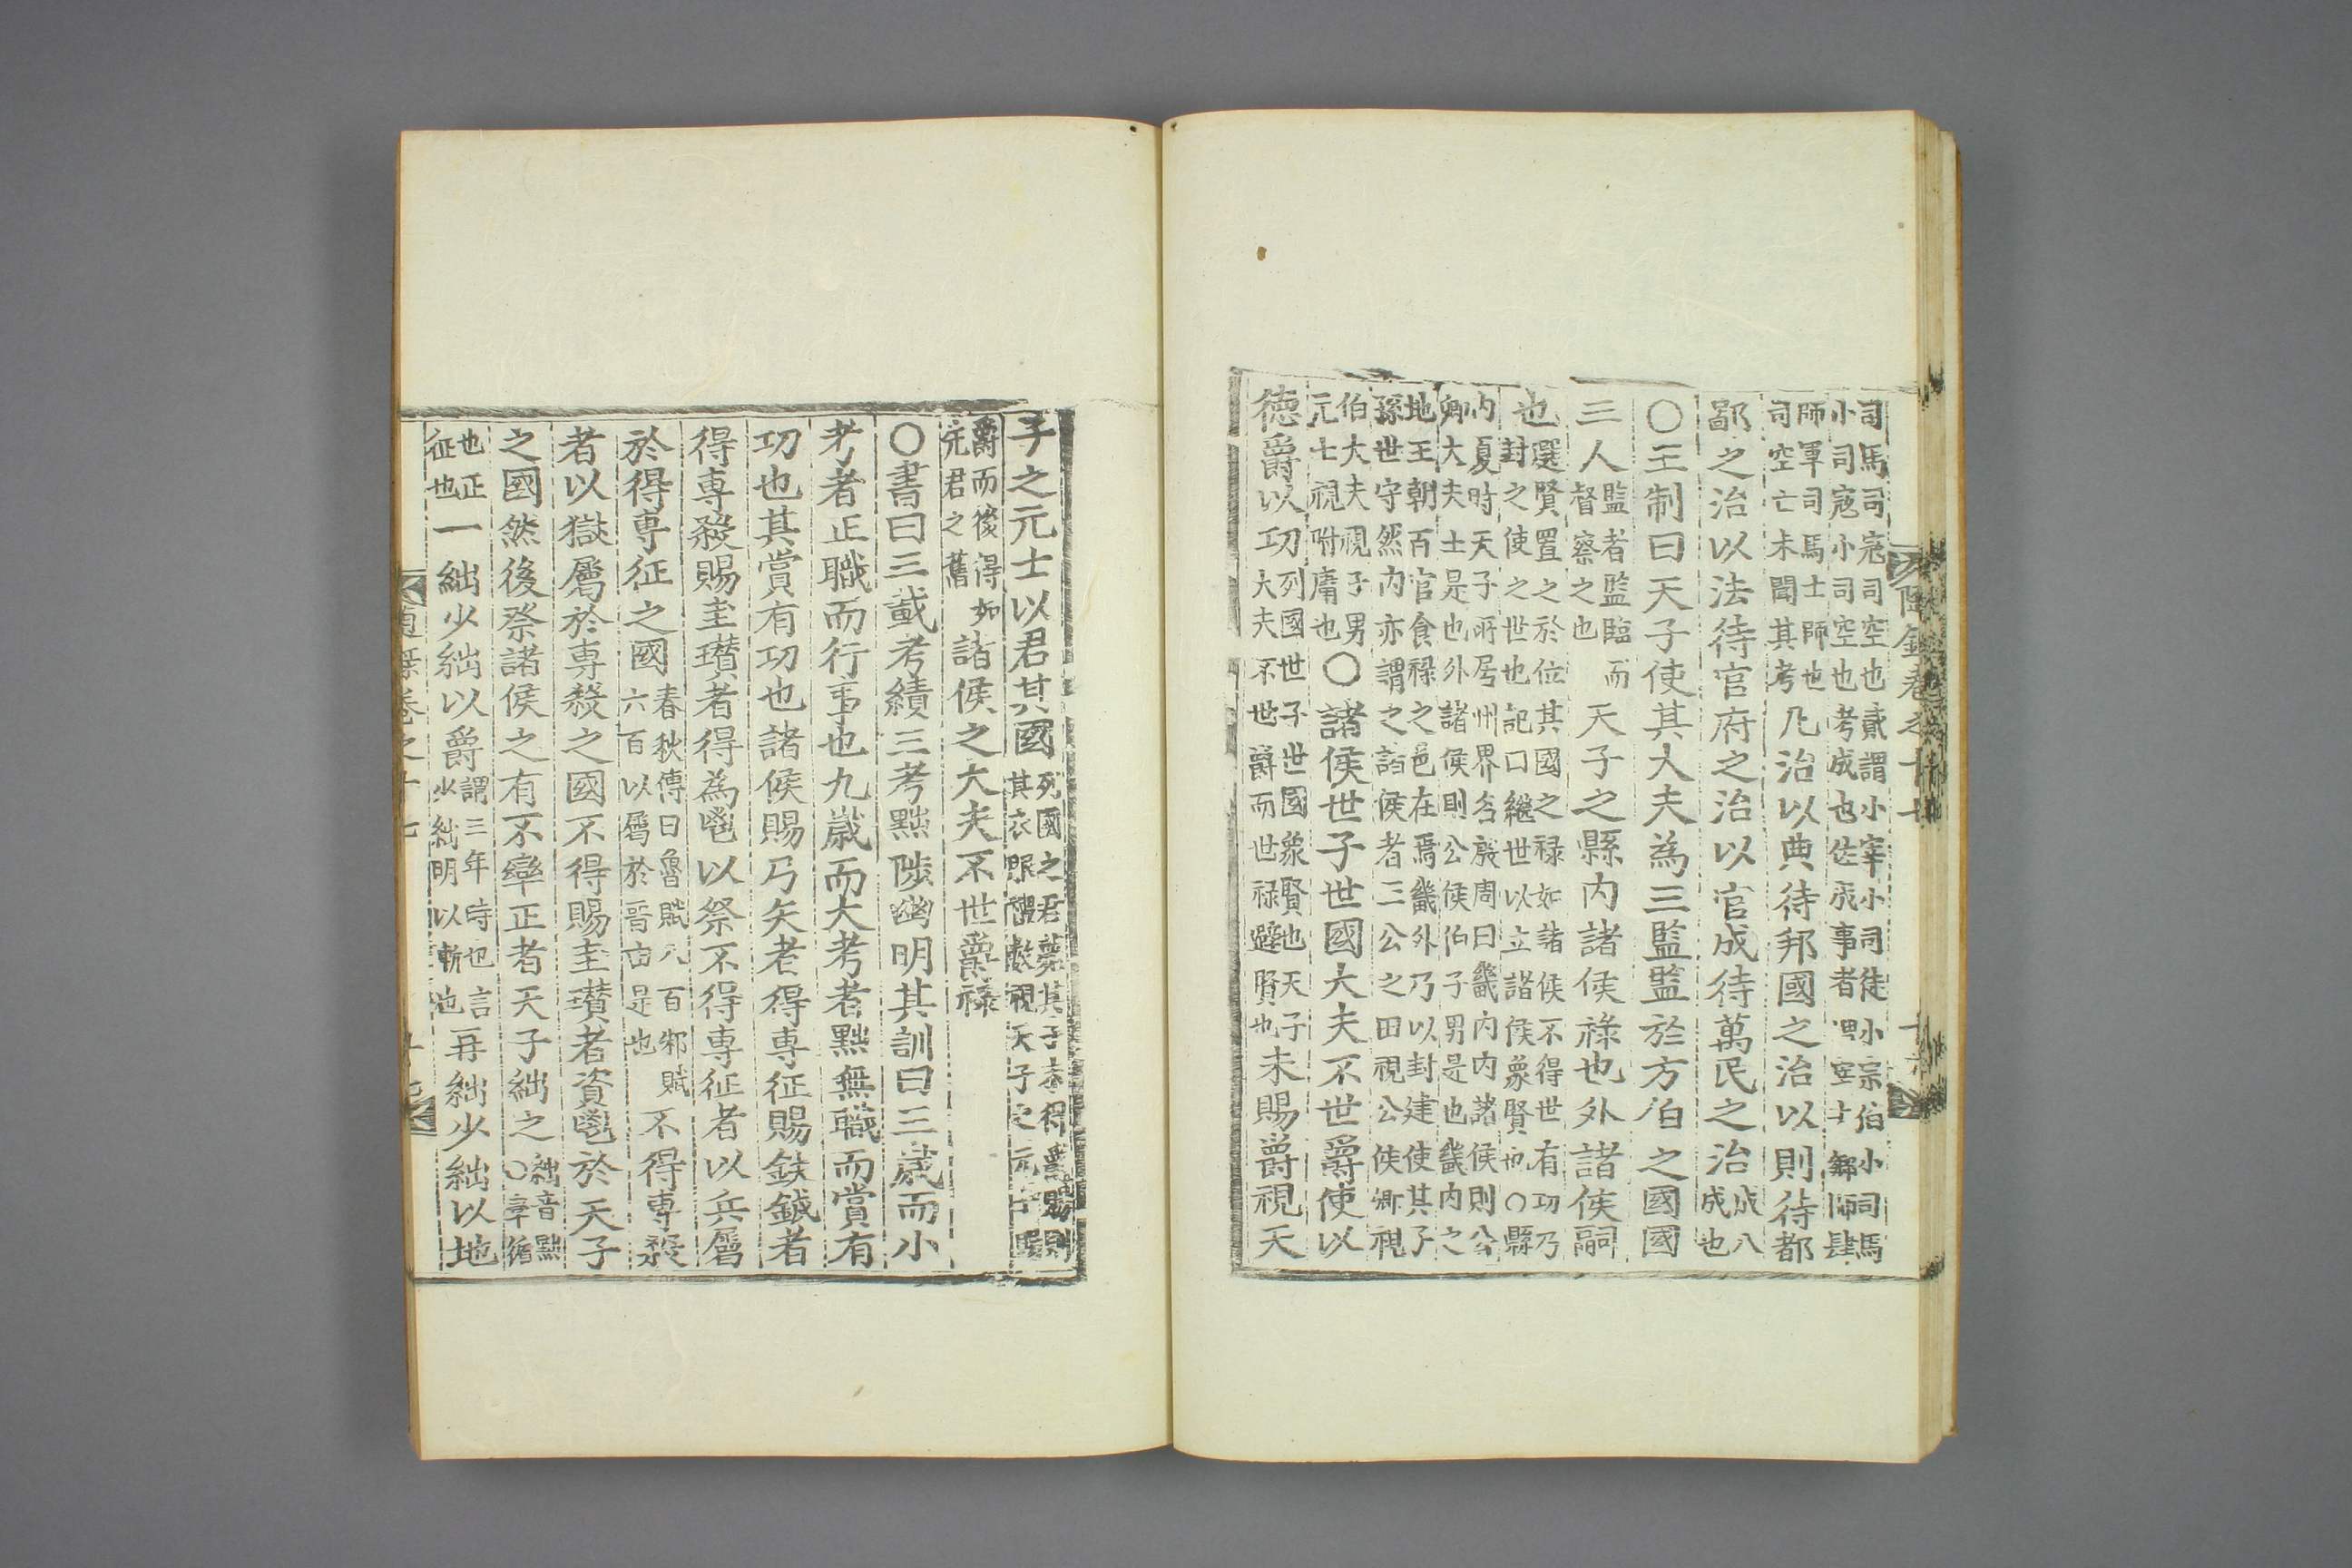 司馬司寇司空也貳謂小宰小司徒小宗伯小司馬
小司寇小司空也考成也佐成事者謂宰夫鄉師肆
師軍司馬士師也
司空亡未聞其考
凡治以典待邦國之治以則待都
鄙之治以法待官府之治以官成待萬民之治
成八
成也
〇王制曰天子使其大夫為三監監於方伯之國國
三人
監者監臨而
督察之也
天子之縣內諸侯祿也外諸侯嗣
也
選賢置之於位其國之禄如諸侯不得世有功乃
封之使之世也記曰繼世以立諸侯象賢也〇縣
內夏時天子所居州界名殷周曰畿內內諸侯則公
卿大夫士是也外諸侯則公侯伯子男是也畿內之
地王朝百官食禄之邑在焉畿外乃以封建使其子
孫世守然內亦謂之諸侯者三公之田視公侯卿視
伯大夫視子男
元士視附庸也
〇諸侯世子世國大夫不世爵使以
德爵以功
列國世子世國象賢也天子
大夫不世爵而世禄避賢也
未賜爵視天
子之元士以君其國
列國之君薨其子未得爵賜則
其衣服禮數視天子之元士賜
爵而後得如
先君之舊
諸侯之大夫不世爵祿
〇書曰三載考績三考黜陟幽明其訓曰三歲而小
考者正職而行事也九歲而大考者黜無職而賞有
功也其賞有功也諸侯賜弓矢者得專征賜鈇鉞者
得專殺賜圭瓚者得為鬯以祭不得專征者以兵屬
於得專征之國
春秋傳曰魯賦八百邾賦
六百以屬於晉吉是也
不得專殺
者以獄屬於專殺之國不得賜圭瓚者資鬯於天子
之國然後祭諸侯之有不率正者天子絀之
絀音黜
〇率循
也正
征也
一絀少絀以爵
謂三年時也言
少絀明以漸也
再絀少絀以地